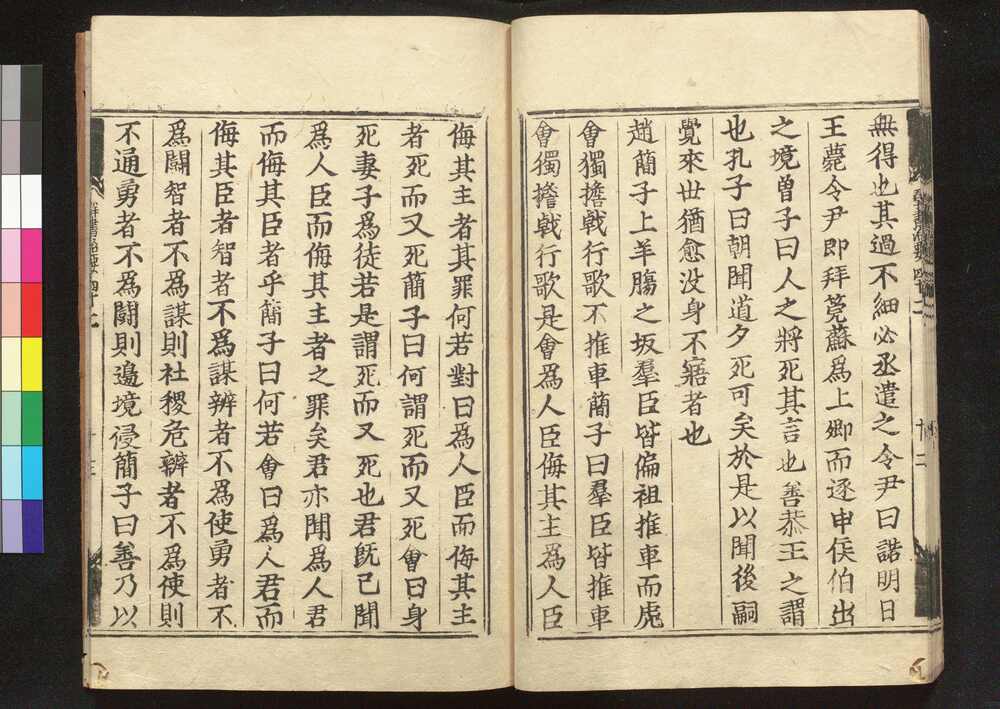 無得也其過不細必丞遣之令尹曰諾明日
王薨令尹即拜筦蘇爲上卿而逐申侯伯出
之境曾子曰人之將死其言也善恭王之謂
也孔子曰朝聞道夕死可矣於是以聞後嗣
覺來世猶愈没身不寤者也
趙蕳子上羊膓之坂羣臣皆偏袒推車而虎
會獨擔戟行歌不推車蕳子曰羣臣皆推車
會獨擔戟行歌是會爲人臣侮其主為人臣
侮其主者其罪何若對曰爲人臣而侮其主
者死而又死蕳子曰何謂死而又死會曰身
死妻子爲徒若是謂死而又死也君既已聞
爲人臣而侮其主者之罪矣君亦聞爲人君
而侮其臣者乎蕳子曰何若會曰爲人君而
侮其臣者智者不爲謀辨者不爲使勇者不
爲鬪智者不爲謀則社稷危辨者不爲使則
不通勇者不爲鬪則邊境侵蕳子曰善乃以
群書治要四十二
十三